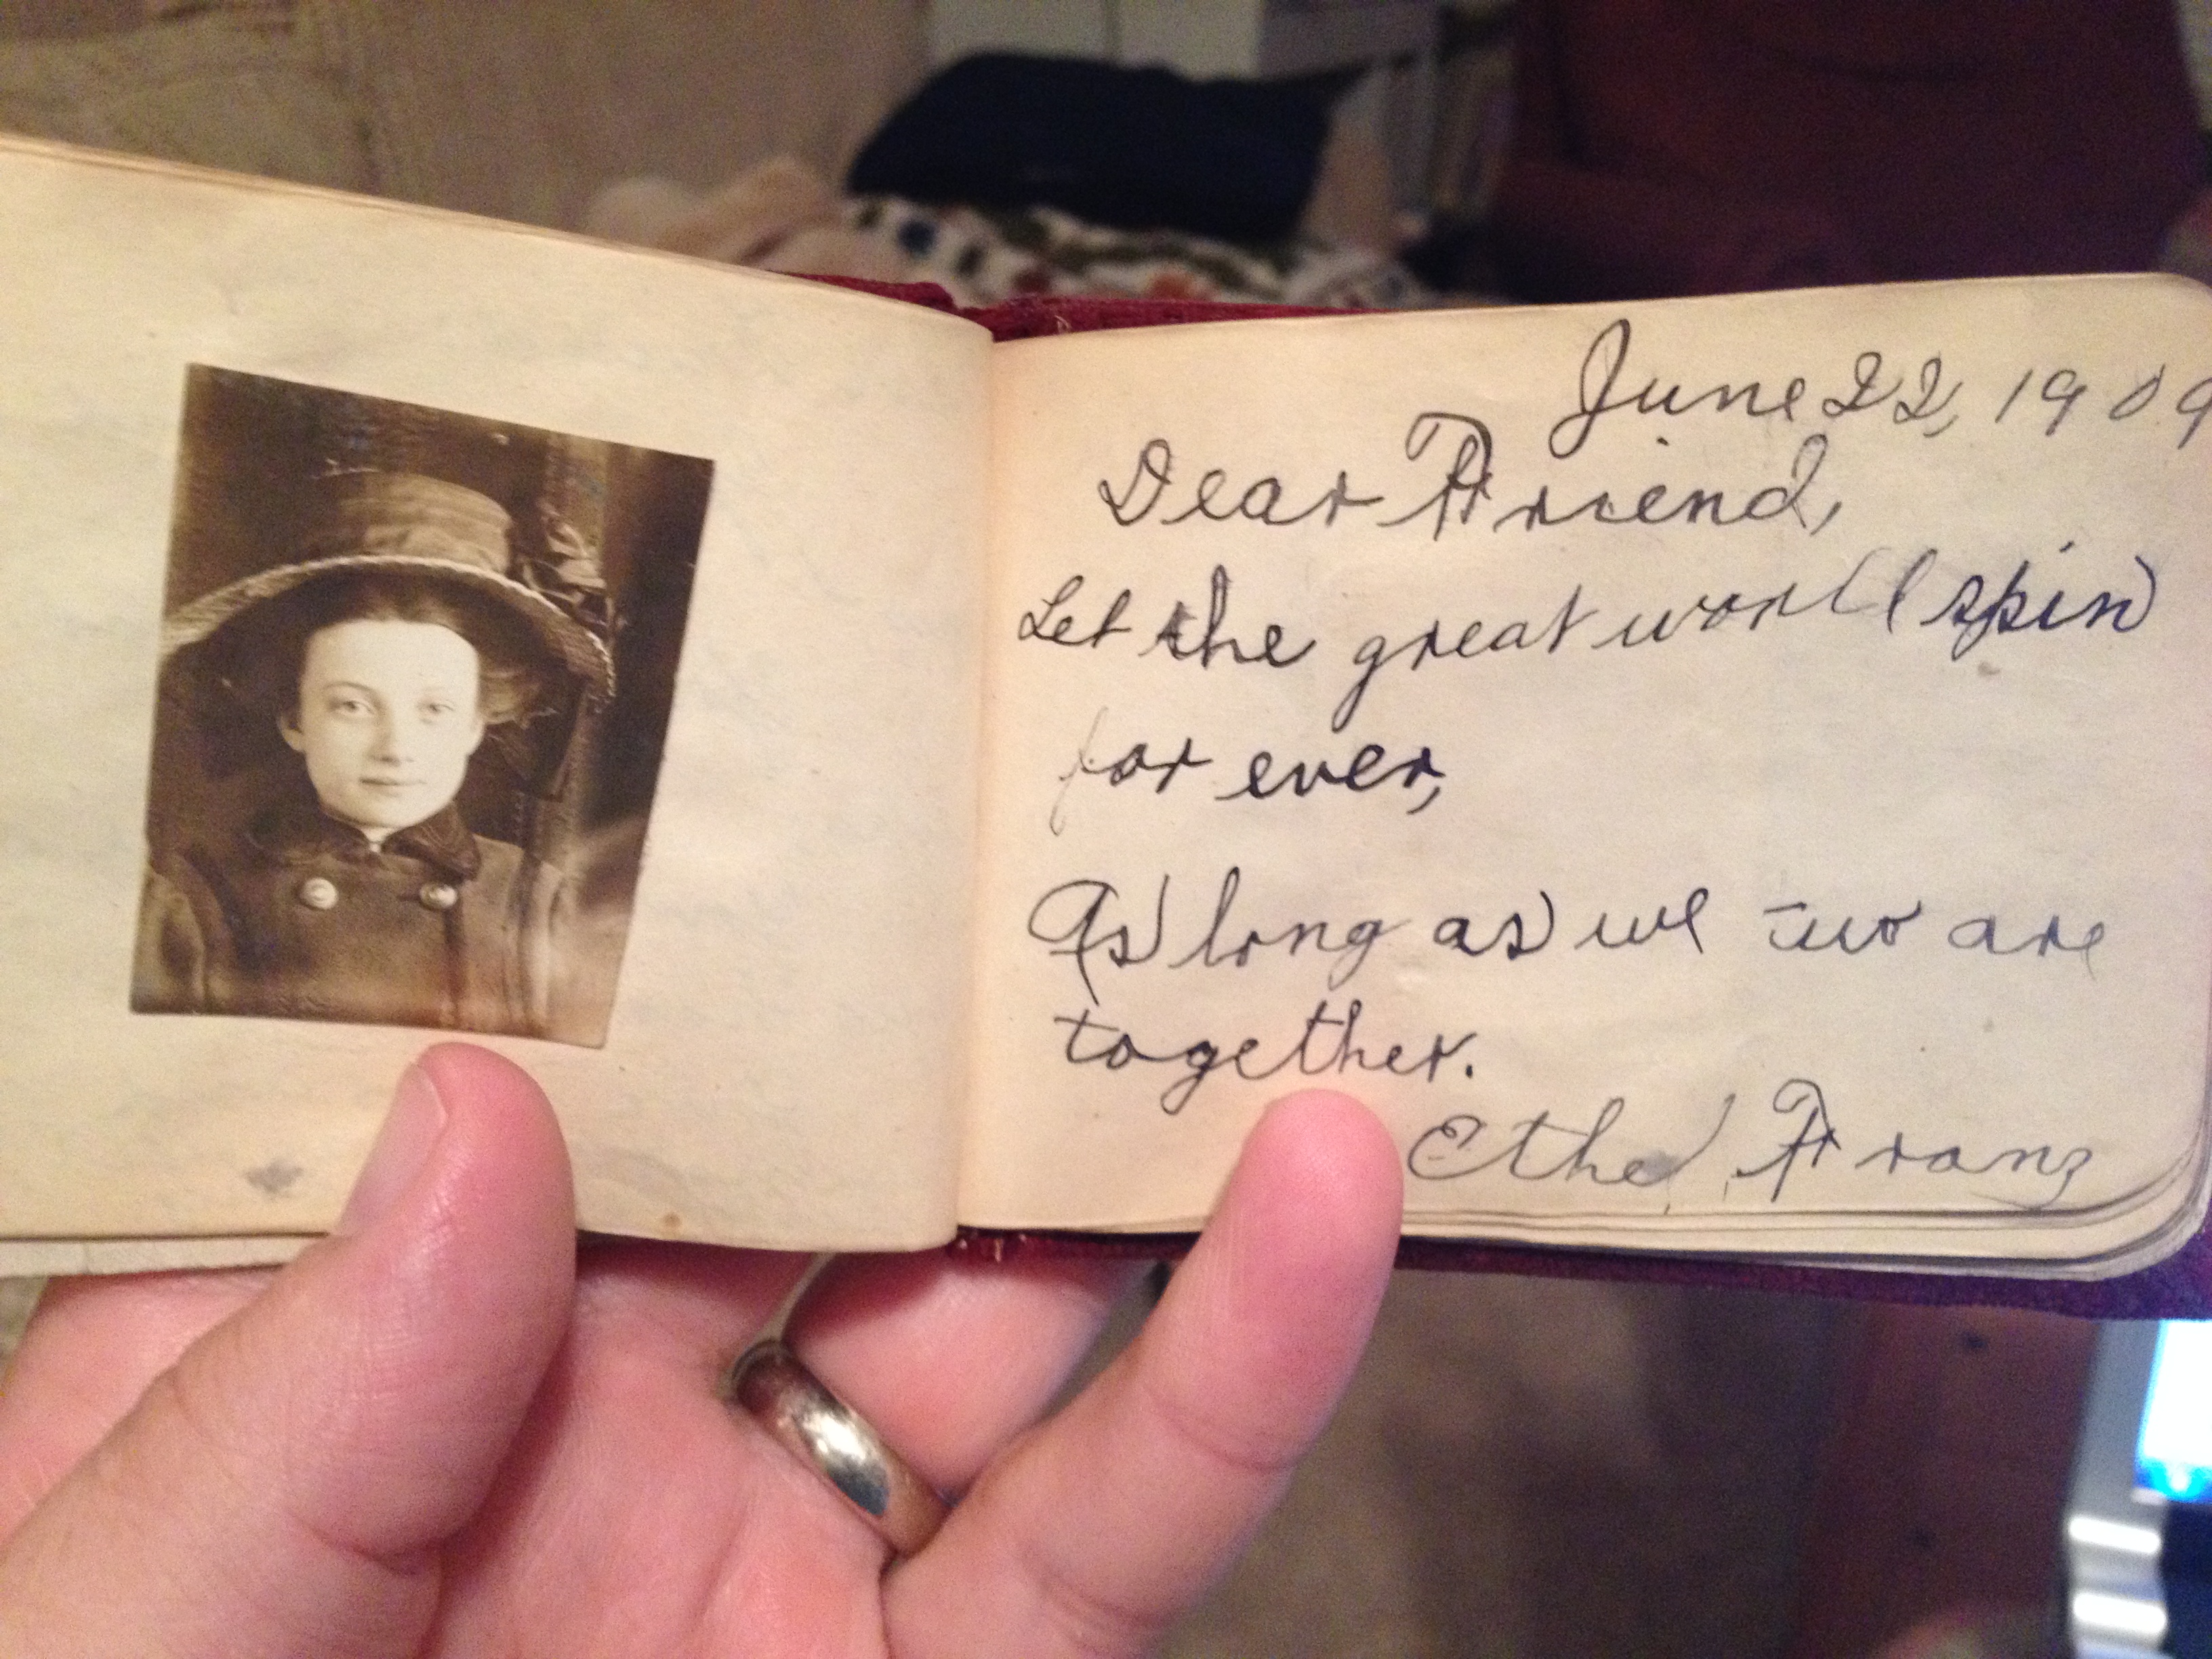 June 22, 1909
Dear Friend,
Let the great world spin
for ever,
As long as we two are
together.
Ethel Franz